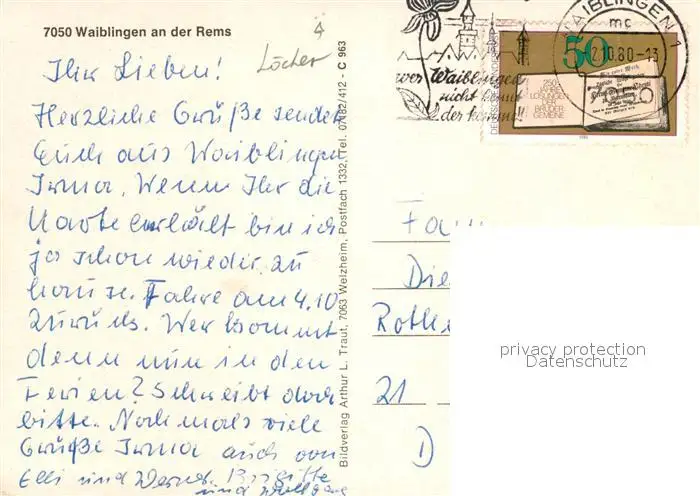 7050 Waiblingen an der Rems
Löcher
Ihr Lieben!
Herzliche Grüße sendet
Euch aus Waiblingen
Irma. Wenn Ihr die
Karte erhält bin ich
ja schon wieder zu
hause. Fahre am 4.10
zurück. Wer kommt
denn nun in den
Ferien? Schreibt doch
bitte. Nochmals viele
Grüße Irma auch von
Elli und Werner. Brigitte
und Wolfgang
Bildverlag Arthur L. Traut, 7063 Welzheim, Postfach 1332, Tel. 07182/412 - C 963
wer Waiblingen
nicht kennt
der komme!
WAIBLINGEN 1
mc
2.10.80-13
50
250
JAHRE
LOSUNGEN
DER
BRÜDER-
GEMEINE
Fam
Die
Rothe
21
D
privacy protection
Datenschutz